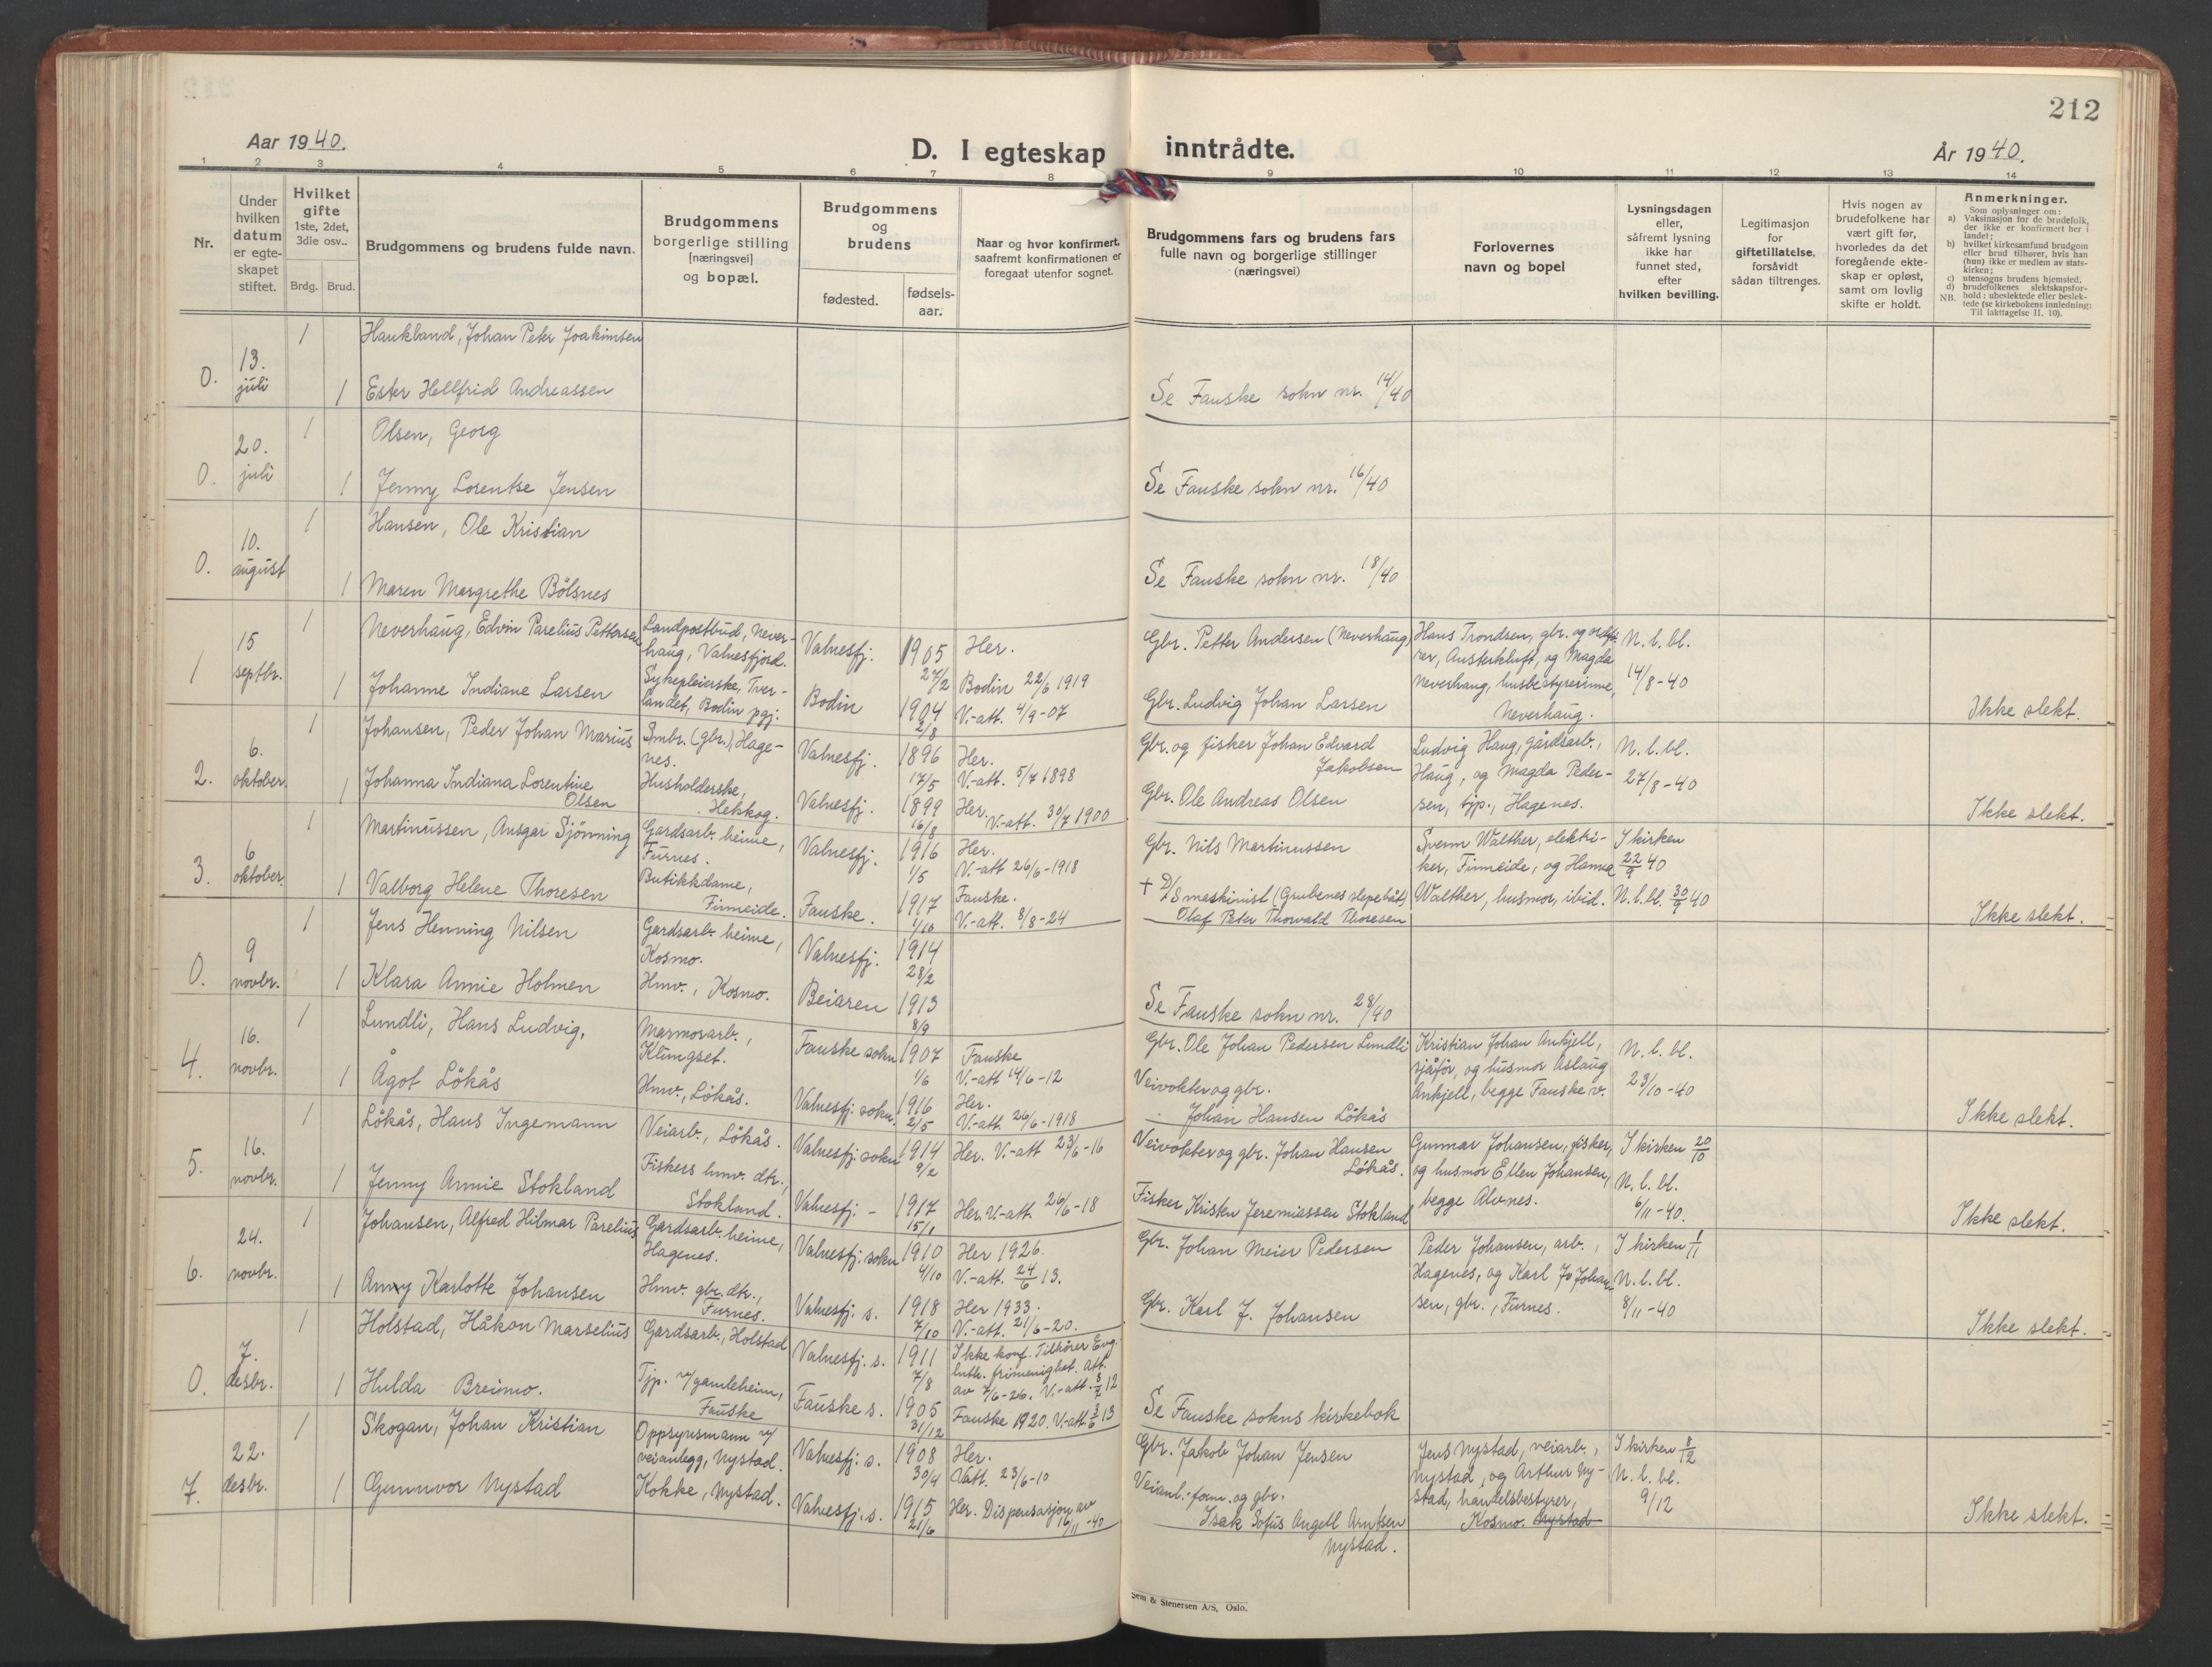 212
Aar 1940.
D. I egteskap inntrådte.
År 1940.
1 2 3 4 5 6 7 8 9 10 11 12 13 14
Nr.
Under hvilken datum er egteskapet stiftet.
Hvilket gifte 1ste, 2det, 3die osv..
Brdg. Brud.
Brudgommens og brudens fulde navn.
Brudgommens borgerlige stilling [næringsvei] og bopæl.
Brudgommens og brudens
fødested.
fødsels-aar.
Naar og hvor konfirmert, saafremt konfirmationen er foregaat utenfor sognet.
Brudgommens fars og brudens fars fulle navn og borgerlige stillinger (næringsvei)
Forlovernes navn og bopel
Lysningsdagen eller, såfremt lysning ikke har funnet sted, efter hvilken bevilling.
Legitimasjon for giftetillatelse, forsåvidt sådan tiltrenges.
Hvis nogen av brudefolkene har vært gift før, hvorledes da det foregående ekteskap er opløst, samt om lovlig skifte er holdt.
Anmerkninger.
Som oplysninger om:
a) Vaksinasjon for de brudefolk, der ikke er konfirmert her i landet;
b) hvilket kirkesamfund brudgom eller brud tilhører, hvis han (hun) ikke er medlem av statskirken;
c) utensogns brudens hjemsted.
d) brudefolkenes slektskapsforhold: ubeslektede eller beslektede (se kirkebokens innledning:
NB. Til iakttagelse II. 10).
0. 13. juli
1 Haukland, Johan Peter Joakimsen
1 Ester Hellfrid Andreassen
Se Fauske sokn nr. 14/40
0. 20. juli
1 Olsen, Georg
1 Jenny Lorentse Jensen
Se Fauske sokn nr. 16/40
0. 10. august
1 Hansen, Ole Kristian
1 Maren Margrethe Bölsnes
Se Fauske sokn nr. 18/40
1 15 septbr.
1 Neverhaug, Edvin Parelius Pettersen
Landpostbud, Neverhaug, Valnesfjord.
Valnesfj. 1905 27/2 Her.
Gbr. Petter Andersen (Neverhaug)
1 Johanne Indiane Larsen
Sykepleierske, Tverlandet, Bodin pgj.
Bodin 1904 2/8 Bodin 22/6 1919 V.-att. 4/9-07
Gbr. Ludvig Johan Larsen
Hans Trondsen, gbr. og ordförer, Austerkluft, og Magda Neverhaug, husbestyrerinne, Neverhaug.
N. l. bl. 14/8-40
Ikke slekt.
2. 6. oktober.
1 Johansen, Peder Johan Marius
Smbr. (gbr.), Hagenes.
Valnesfj. 1896 17/5 Her. V.-att. 5/7 1898
Gbr. og fisker Johan Edvard Jakobsen
1 Johanna Indiana Lorentine Olsen
Husholderske, Hekkog.
Valnesfj. 1899 16/8 Her. V.-att. 30/7 1900
Gbr. Ole Andreas Olsen
Ludvig Haug, gårdsarb., Haug, og Magda Pedersen, tjp., Hagenes.
N. l. bl. 27/8-40
Ikke slekt.
3. 6 oktober.
1 Martinussen, Ansgar Sjönning
Gardsarb. heime, Furnes.
Valnesfj. 1916 1/5 Her. V.-att 26/6-1918
Gbr. Nils Martinussen
1 Valborg Helene Thoresen
Butikkdame, Finneide.
Fauske. 1917 1/10 Fauske. V.-att. 8/8-24
† D/S maskinist (Grubenes slepebåt) Olaf Peter Thorvald Thoresen
Svenn Walther, elektriker, Finneide, og Hanna Walther, husmor, ibid.
I kirken 22/9 40 N. l. bl. 30/9 40
Ikke slekt.
0. 9 novbr.
1 Jens Henning Nilsen
Gardsarb. heime, Kosmo.
Valnesfj. 1914 28/2
1 Klara Annie Holmen
Hmv., Kosmo.
Beiaren 1913 8/9
Se Fauske sokn nr. 28/40
4. 16. novbr.
1 Lundli, Hans Ludvig,
Marmorarb., Klungset.
Fauske sokn 1907 1/6 Fauske V.-att 14/6-12
Gbr. Ole Johan Pedersen Lundli
1 Ågot Lökås
Hmv., Lökås.
Valnesfj. sokn. 1916 2/5 Her. V.-att. 26/6-1918
Veivokter og gbr. Johan Hansen Lökås
Kristian Johan Ankjell, sjåför, og husmor Aslaug Ankjell, begge Fauske v.
N. l. bl. 23/10-40
Ikke slekt.
5. 16. novbr.
1 Lökås, Hans Ingemann
Veiarb., Lökås.
Valnesfj. sokn 1914 9/2 Her. V.-att 23/6-16
Veivokter og gbr. Johan Hansen Lökås.
1 Jenny Annie Stokland
Fiskers hmv. dtr., Stokland.
Valnesfj. - 1917 15/1 Her. V-att. 26/6-18
Fisker Kristen Jeremiassen Stokland
Gunnar Johansen, fisker, og husmor Ellen Johansen, begge Alvnes.
I kirken 20/10 N. l. bl. 6/11-40.
Ikke slekt.
6. 24. novbr.
1 Johansen, Alfred Hilmar Parelius
Gardsarb. heime, Hagenes.
Valnesfj. sokn 1910 4/10 Her 1926. V.-att. 24/6 13.
Gbr. Johan Meier Pedersen
1 Anny Karlotte Johansen
Hmv. gbr. dtr., Furnes.
Valnesfj. s. 1918 7/10 Her 1933. V.-att. 21/6-20.
Gbr. Karl J. Johansen
Peder Johansen, arb., Hagenes, og Karl J. Johansen, gbr., Furnes.
I kirken 1/11 N. l. bl. 8/11-40
Ikke slekt.
0. 7. desbr.
1 Holstad, Håkon Marselius
Gardsarb., Holstad
Valnesfj. s. 1911 7/8 Ikke konf. Tilhörer Evg. luth. frimenighet. Att. av 7/6-26. V.-att. 8/7 12
1 Hulda Breimo.
Tjp. v/gamleheim, Fauske
Fauske s. 1905 31/12 Fauske 1920. V.-att 3/6 13
Se Fauske sokns kirkebok
7. 22. desbr.
1 Skogan, Johan Kristian
Oppsynsmann v/ veianlegg, Nystad.
Valnesfj. s. 1908 30/4 Her. Vatt. 23/6-10
Gbr. Jakob Johan Jensen
1 Gunnvor Nystad
Kokke, Nystad.
Valnesfj. s. 1915 21/6 Her. Dispensasjon av 16/11-40
Veianl. form. og gbr. Isak Sofus Angell Arntsen Nystad.
Jens Nystad, veiarb., Nystad, og Arthur Nystad, handelsbestyrer, Kosmo. Nystad
I kirken 8/12 N. l. bl. 9/12
Ikke slekt.
Sem & Stenersen A/S, Oslo.